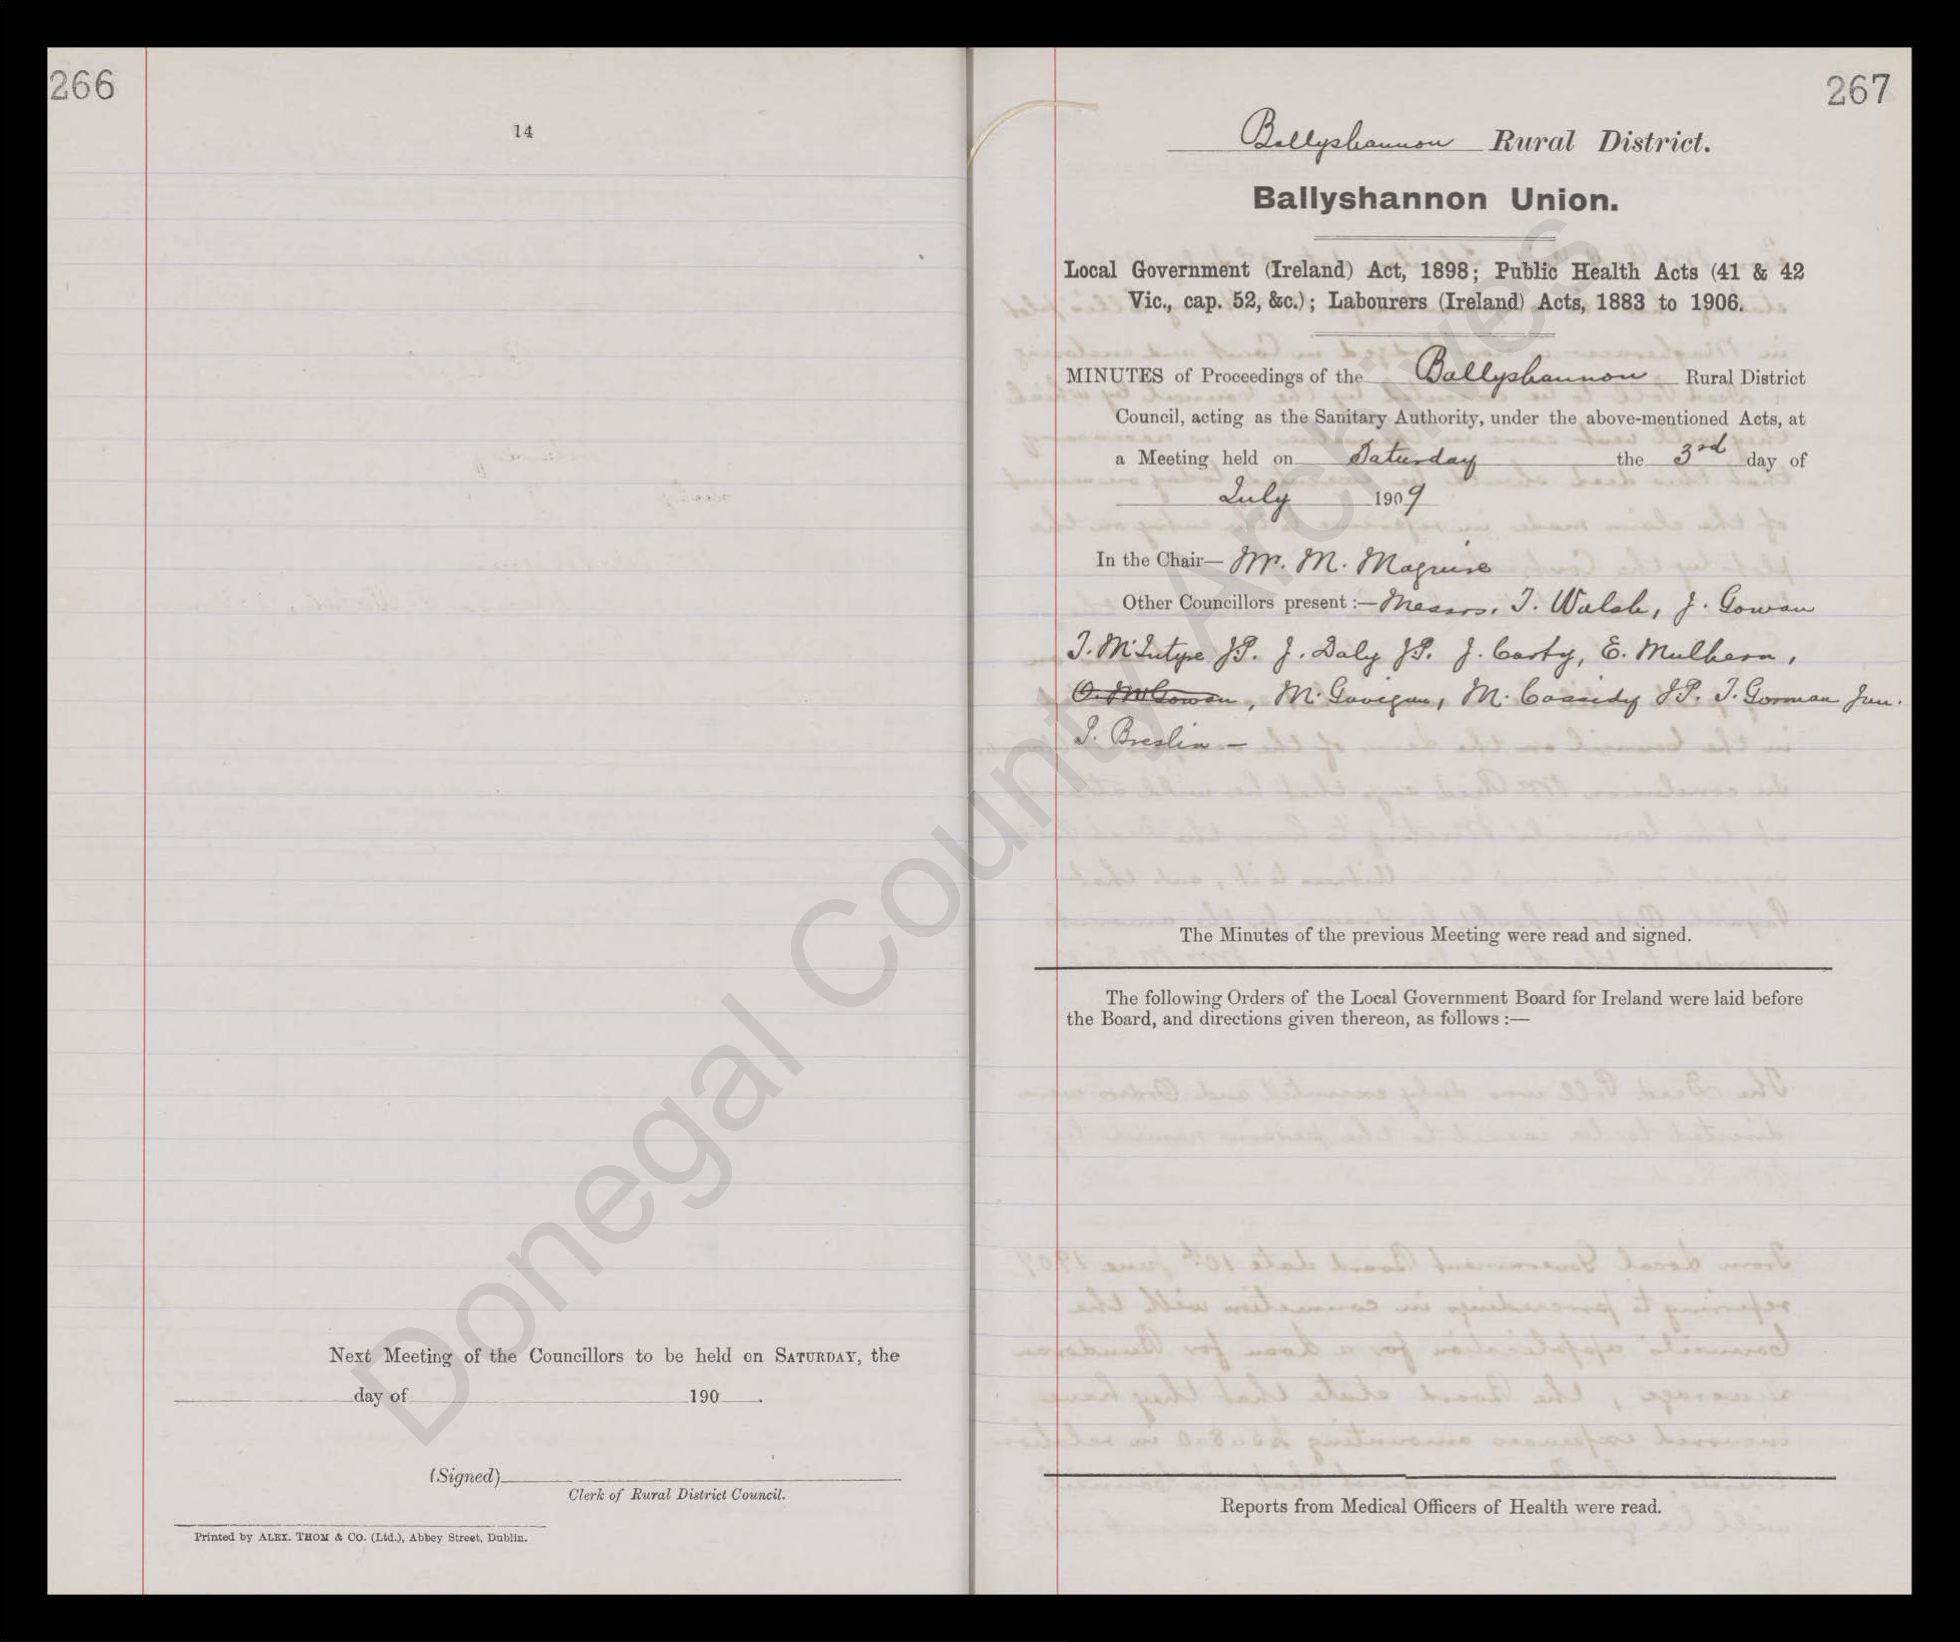 266
14
Next Meeting of the Councillors to be held on SATURDAY, the
day of 190 .
(Signed)
Clerk of Rural District Council.
Printed by ALEX. THOM & CO. (Ltd.), Abbey Street, Dublin.
267
Ballyshannon Rural District.
Ballyshannon Union.
Local Government (Ireland) Act, 1898; Public Health Acts (41 & 42
Vic., cap. 52, &c.); Labourers (Ireland) Acts, 1883 to 1906.
MINUTES of Proceedings of the Ballyshannon Rural District
Council, acting as the Sanitary Authority, under the above-mentioned Acts, at
a Meeting held on Saturday the 3rd day of
July 1909
In the Chair— Mr. M. Maguire
Other Councillors present :— Messrs. T. Walsh, J. Gowan
T. McIntyre JP. J. Daly JP. J. Carty, E. Mulhern,
O. McGowan, M. Gavigan, M. Cassidy JP. T. Gorman Jun.
T. Breslin —
The Minutes of the previous Meeting were read and signed.
The following Orders of the Local Government Board for Ireland were laid before
the Board, and directions given thereon, as follows :—
Reports from Medical Officers of Health were read.
Donegal County Archives